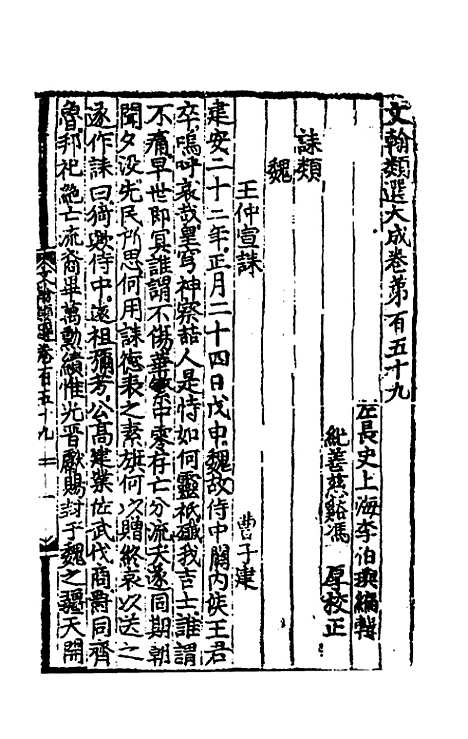 文翰類選大成卷第一百五十九
左長史上海李伯璵編輯
紀善慈谿馮 厚校正
誄類
魏
王仲宣誄 曹子建
建安二十二年正月二十四日戊申魏故侍中關內侯王君
卒嗚呼哀哉皇穹神察喆人是恃如何靈祇殲我吉士誰謂
不痛早世即冥誰謂不傷華繁中零存亡分流夭遂同期朝
聞夕没先民所思何用誄德表之素旗何以贈終哀以送之
遂作誄曰猗歟侍中遠祖彌芳公高建業佐武伐商爵同齊
魯邦祀絶亡流裔畢萬勳績惟光晋獻賜封于魏之疆天開
文翰類選卷百五十九